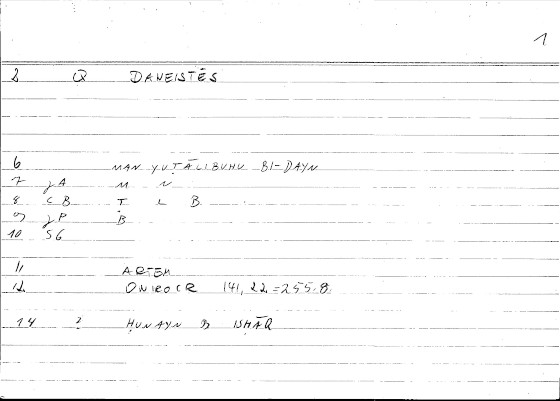 1
2 Q DANEISTĒS
6 MAN YUṬĀLIBUHU BI-DAYN
7 JA M N
8 CB Ṭ L B
9 JP B
10 SG
11 ARTEM
12 ONIROCR 141,22=255.8
14 ? ḤUNAYN B ISḤĀQ